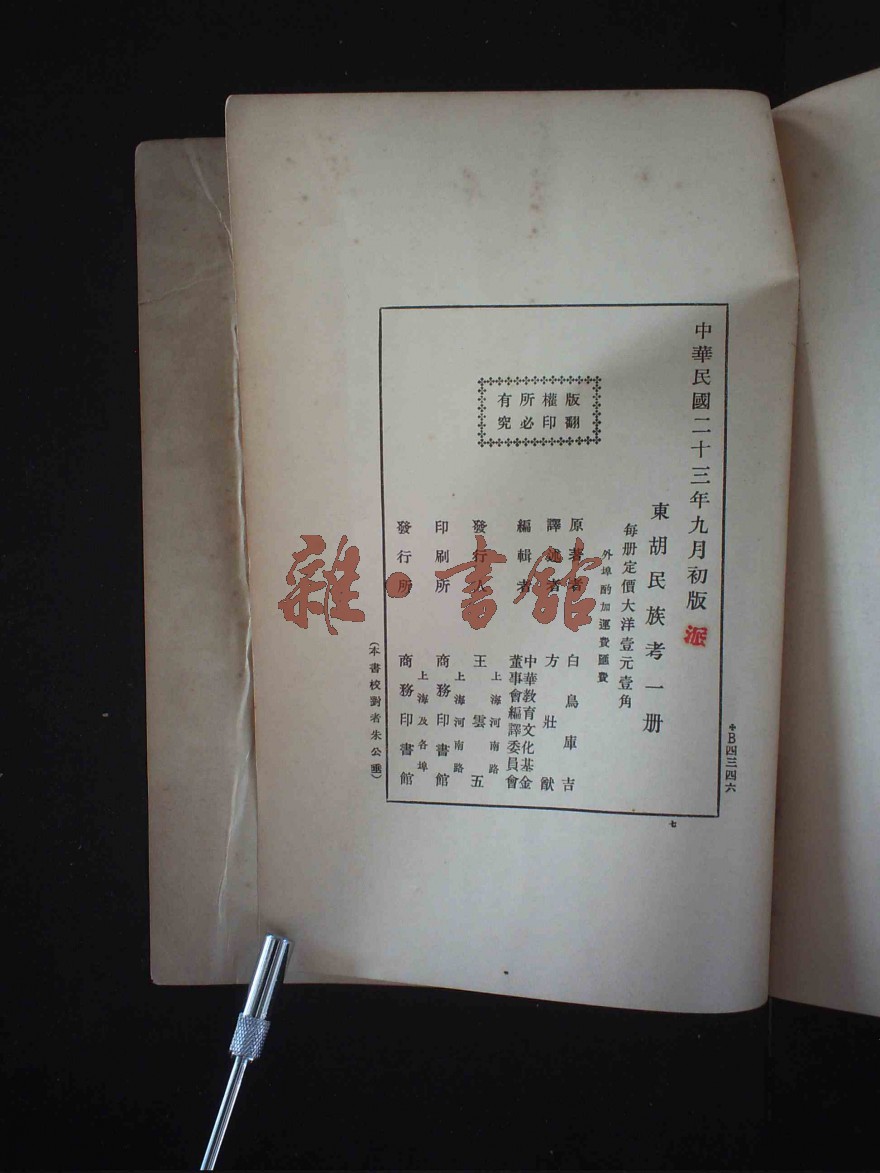 中華民國二十三年九月初版
派
東胡民族考一册
每册定價大洋壹元壹角
外埠酌加運費匯費
版權所有
翻印必究
原著者 白鳥庫吉
譯述者 方壯猷
編輯者 中華教育文化基金
董事會編譯委員會
發行人 王雲五
上海河南路
印刷所 商務印書館
上海河南路
發行所 商務印書館
上海及各埠
(本書校對者朱公垂)
B四三四六
七
雜·書館